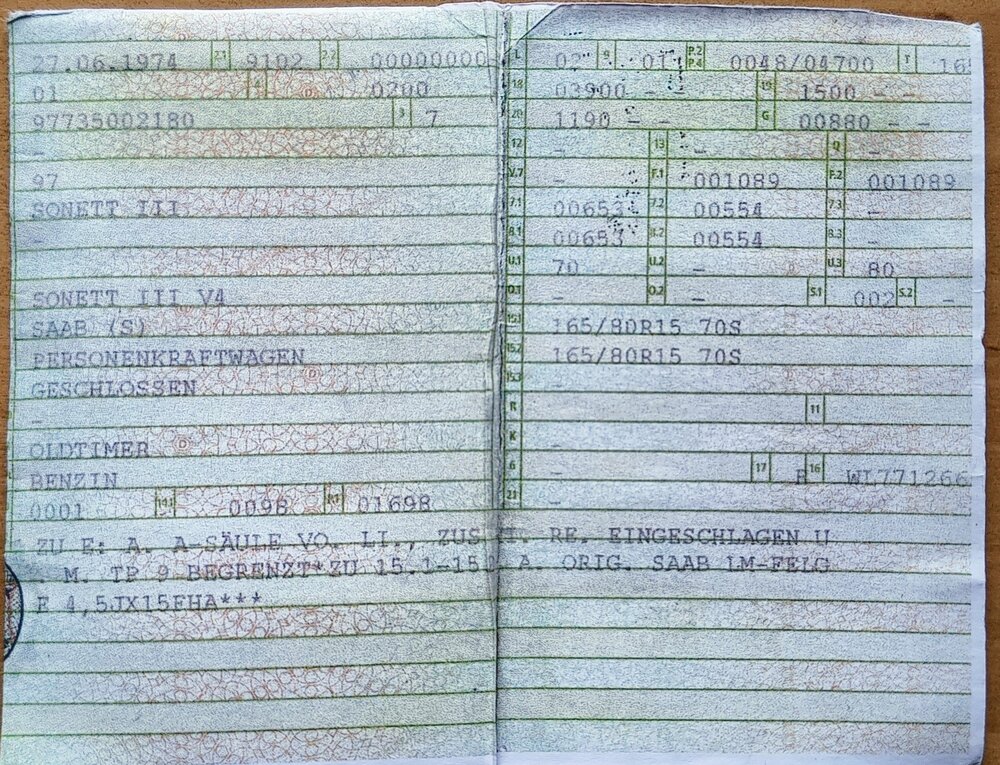 27.06.1974 2.1 9102 2.2 00000000 L 02 9 01 P.2 P.4 0048/04700 T 165
01 4 0200 18 03900 - - 19 1500 - -
97735002180 3 7 20 1190 - - G 00880 - -
- 12 - 13 - Q -
97 V.7 - F.1 001089 F.2 001089
SONETT III 7.1 00653 7.2 00554 7.3 -
- 8.1 00653 8.2 00554 8.3 -
U.1 70 U.2 - U.3 80
SONETT III V4 O.1 - O.2 - S.1 002 S.2 -
SAAB (S) 15.1 165/80R15 70S
PERSONENKRAFTWAGEN 15.2 165/80R15 70S
GESCHLOSSEN 15.3 -
- R 11
OLDTIMER K -
BENZIN 6 - 17 R 16 WL771266
0001 14.1 0098 P.1 01698 21 -
ZU E: A. A-SÄULE VO. LI., ZUS. H. RE. EINGESCHLAGEN U
. M. TP 9 BEGRENZT*ZU 15.1-15 A. ORIG. SAAB LM-FELG
E 4,5JX15FHA***